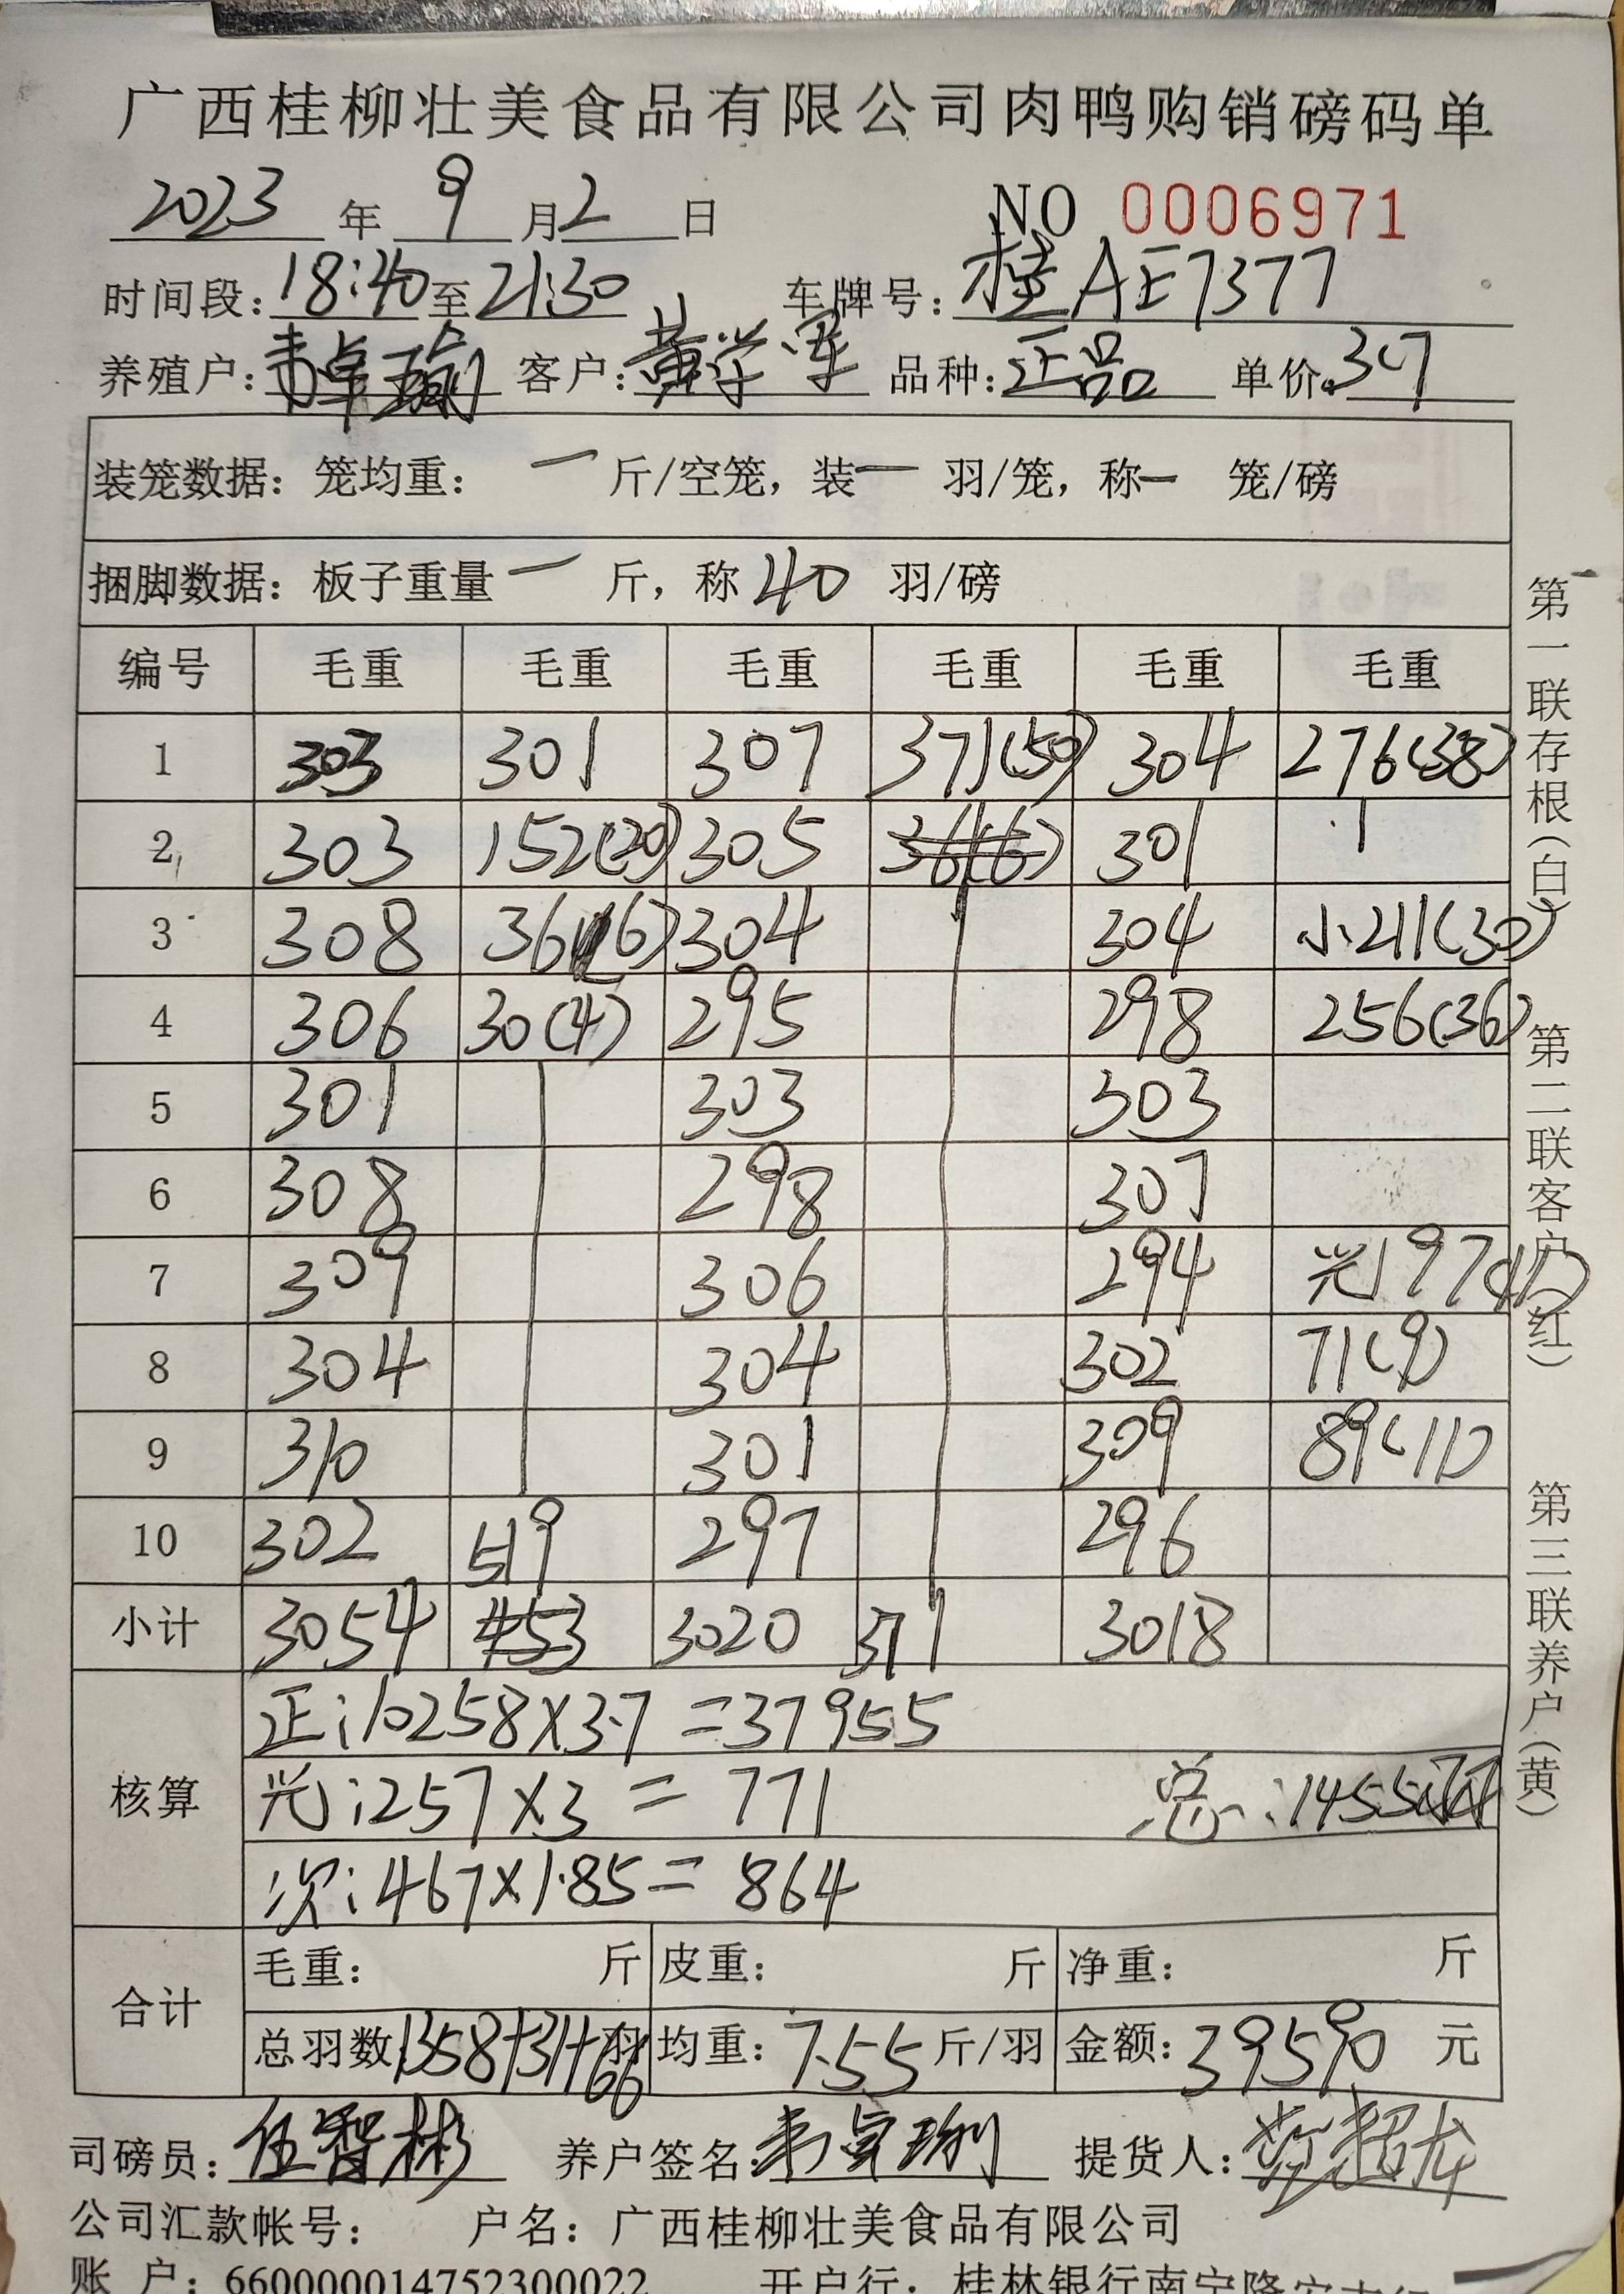 广西桂柳壮美食品有限公司肉鸭购销磅码单
2023 年 9 月 2 日 NO 0006971
时间段：18:40 至 21:30 车牌号：桂AE7377
养殖户：韦卓瑜 客户：黄学军 品种：正品 单价：3.7
装笼数据：笼均重： 一 斤/空笼，装 一 羽/笼，称 一 笼/磅
捆脚数据：板子重量 一 斤，称 40 羽/磅
编号 毛重 毛重 毛重 毛重 毛重 毛重
1 303 301 307 371(50) 304 276(38)
2 303 152(20) 305 36(6) 301
3 308 36(6) 304 304 小211(30)
4 306 30(4) 295 298 256(36)
5 301 303 303
6 308 298 307
7 309 306 294 光197(17)
8 304 304 302 71(9)
9 310 301 309 89(11)
10 302 519 297 296
小计 3054 453 3020 371 3018
核算 正：10258×3.7=37955
光：257×3=771 总：1455羽
次：467×1.85=864
合计 毛重： 斤 皮重： 斤 净重： 斤
总羽数 1358+31+66 羽 均重：7.55 斤/羽 金额：39590 元
司磅员：伍智彬 养户签名： 提货人：
公司汇款帐号： 户名：广西桂柳壮美食品有限公司
账 户：660000014752300022 开户行：桂林银行南宁隆安支行
第一联存根（白）
第二联客户（红）
第三联养户（黄）